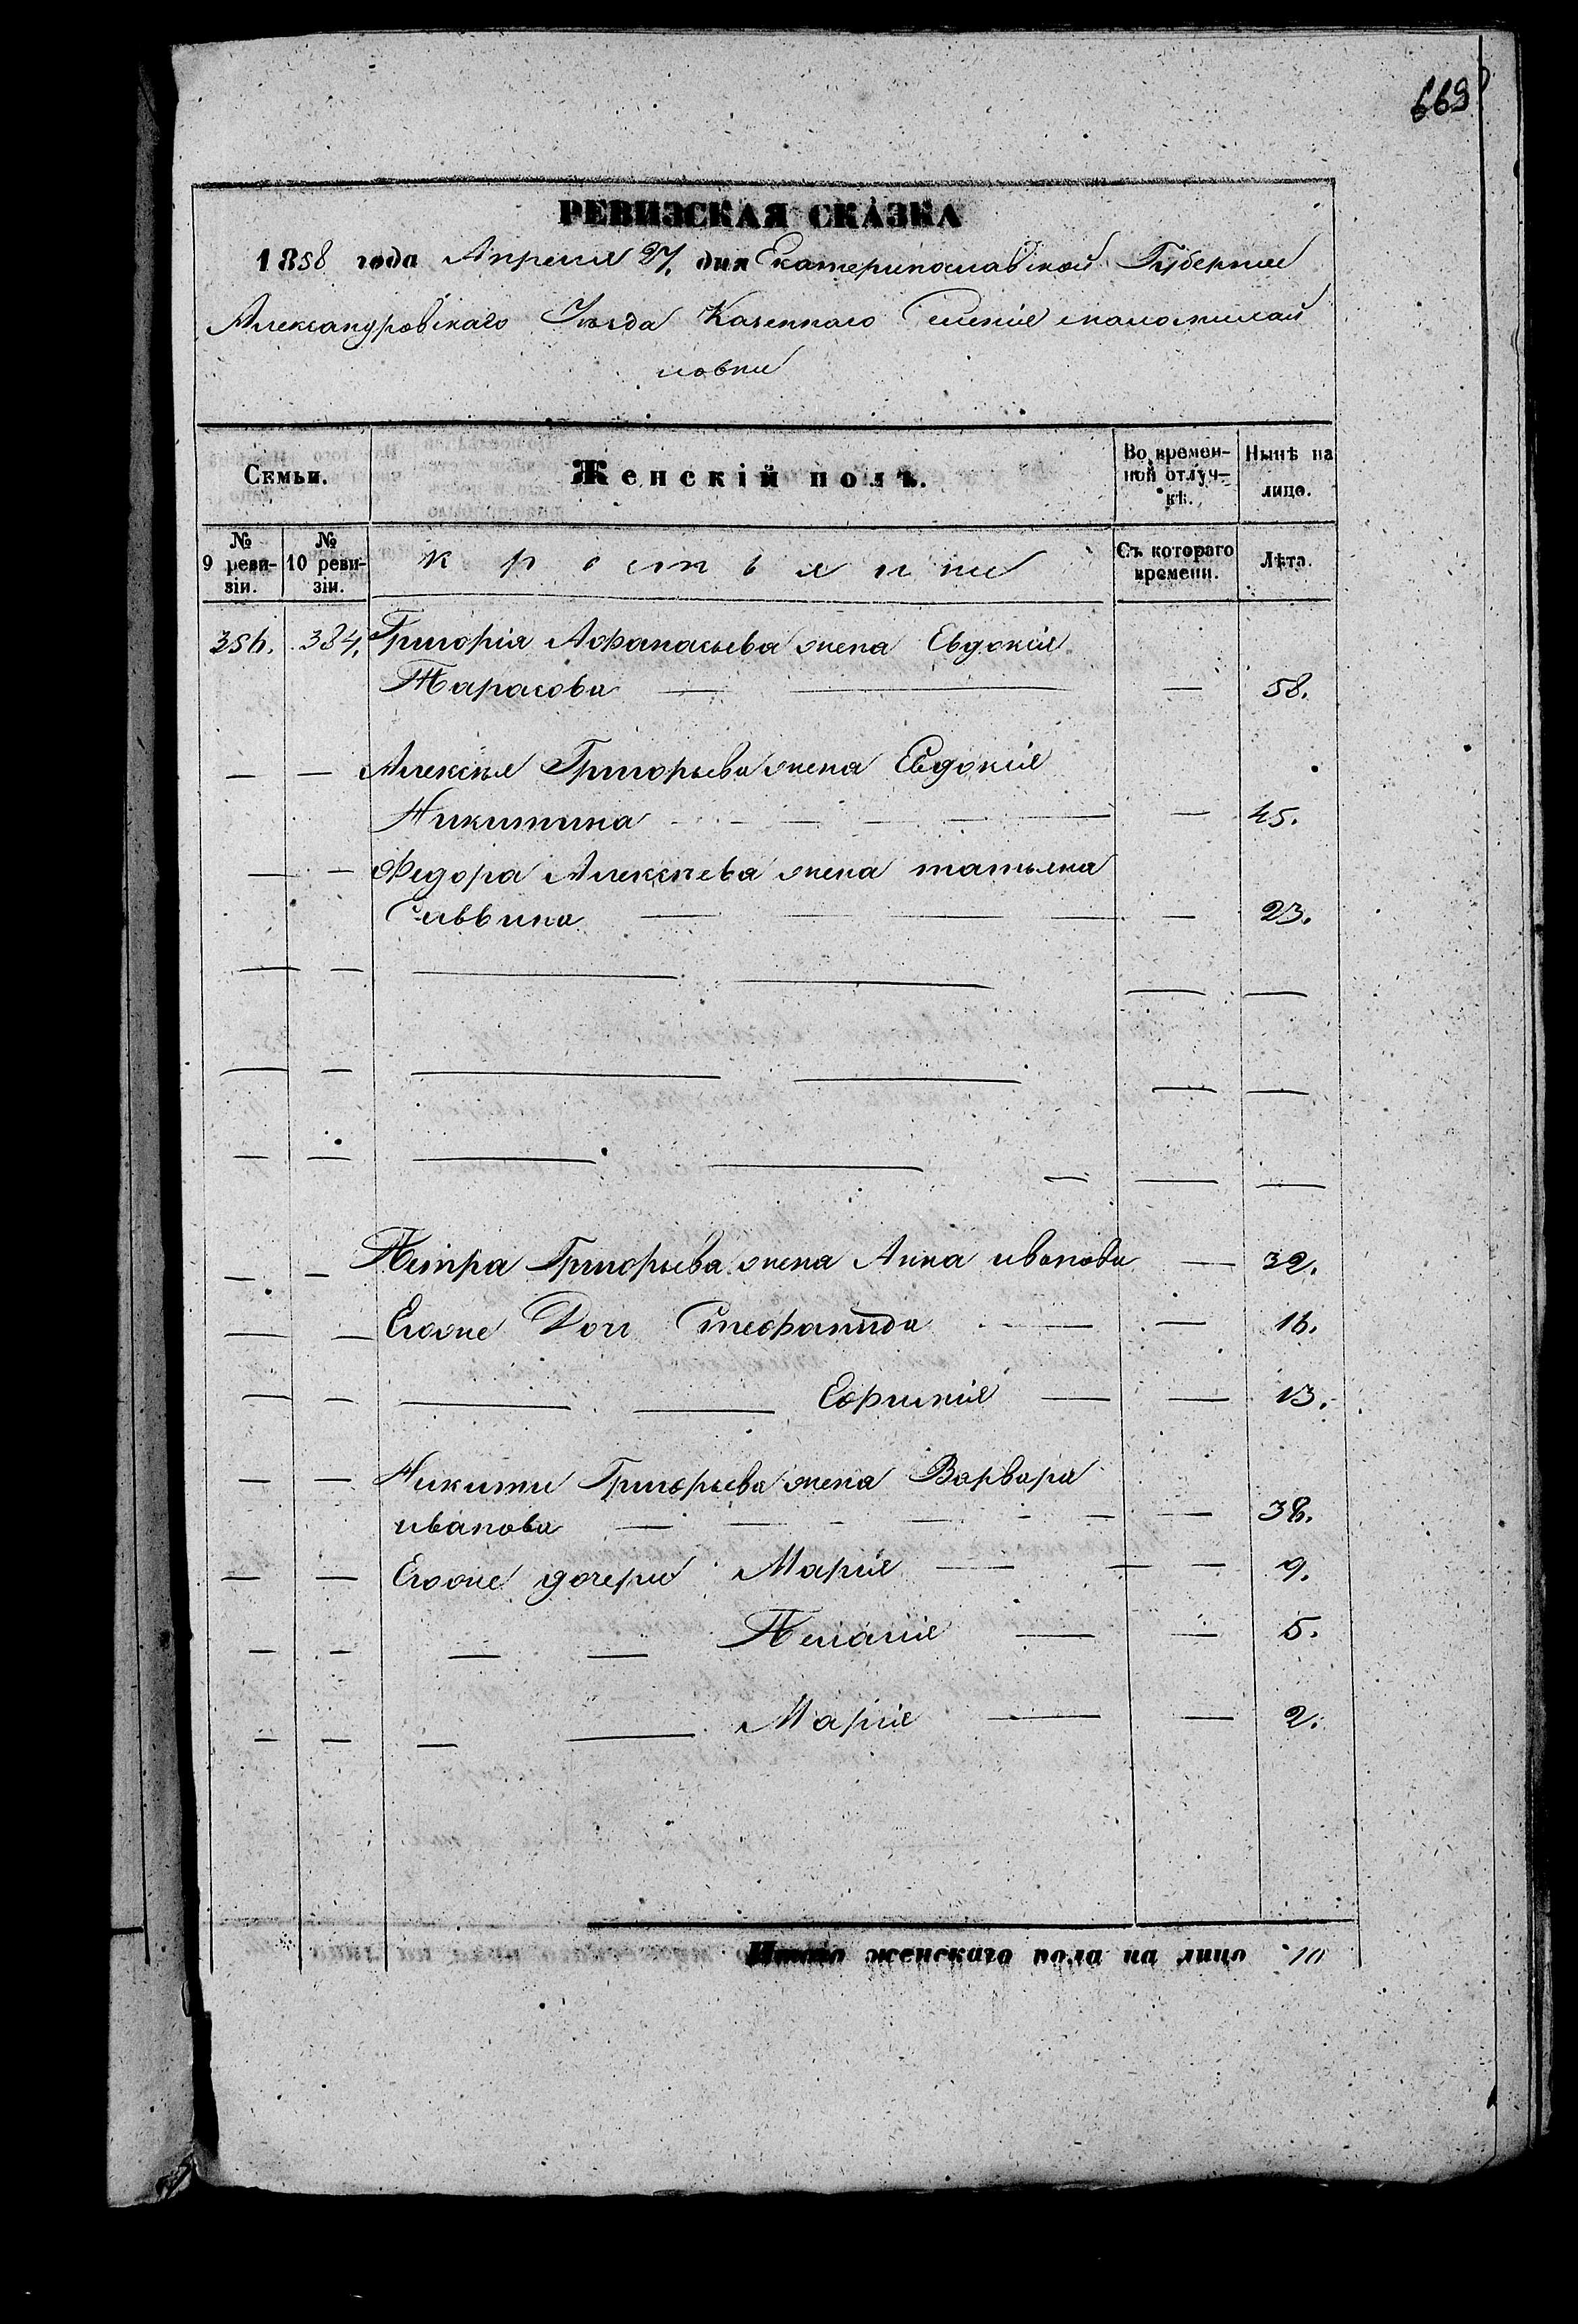 669
РЕВИЗСКАЯ СКАЗКА
1858 года Апреля 27. дня Екатеринославской Губернии
Александровскаго Уезда Казеннаго Селения маломихай
ловки
Семьи. Женскій полъ. Во времен- Нынѣ на
ной отлуч- лицо.
кѣ.
№ № крестьяни Съ котораго Лѣта.
9 реви- 10 реви- времени.
зіи. зіи.
356. 384. Григорія Афанасьева жена Евдокія
Тарасова — — — 58.
— — Алексѣя Григорьева жена Евдокія
Никитина — — — — 45.
— — Федора Алексѣева жена татьяна
Саввина — — — — 23.
— — — — — —
— — — — — —
— — — — — — —
— — Петра Григорьева жена Анна иванова — 32.
— — Егоже Доч Стефанида — — 16.
— — — — Ефимія — — 13.
— — Никиты Григорьева жена Варвара
иванова — — — — — — 38.
— — Егоже дочери Марія — — — 9.
— — — — Пелагія — — 5.
— — — — Марія — — 2.
Итого женскаго пола на лицо 10